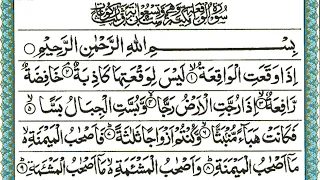 سُوْرَةُ الْوَاقِعَةِ مَكِّيَّةٌ
بِسْمِ اللهِ الرَّحْمٰنِ الرَّحِيْمِ
اِذَا وَقَعَتِ الْوَاقِعَةُ ۱ لَيْسَ لِوَقْعَتِهَا كَاذِبَةٌ ۲ خَافِضَةٌ
رَّافِعَةٌ ۳ اِذَا رُجَّتِ الْاَرْضُ رَجًّا ۴ وَّبُسَّتِ الْجِبَالُ بَسًّا ۵
فَكَانَتْ هَبَآءً مُّنْۢبَثًّا ۶ وَّكُنْتُمْ اَزْوَاجًا ثَلٰثَةً ۷ فَاَصْحٰبُ الْمَيْمَنَةِ
مَآ اَصْحٰبُ الْمَيْمَنَةِ ۸ وَاَصْحٰبُ الْمَشْـَٔمَةِ مَآ اَصْحٰبُ الْمَشْـَٔمَةِ ۹